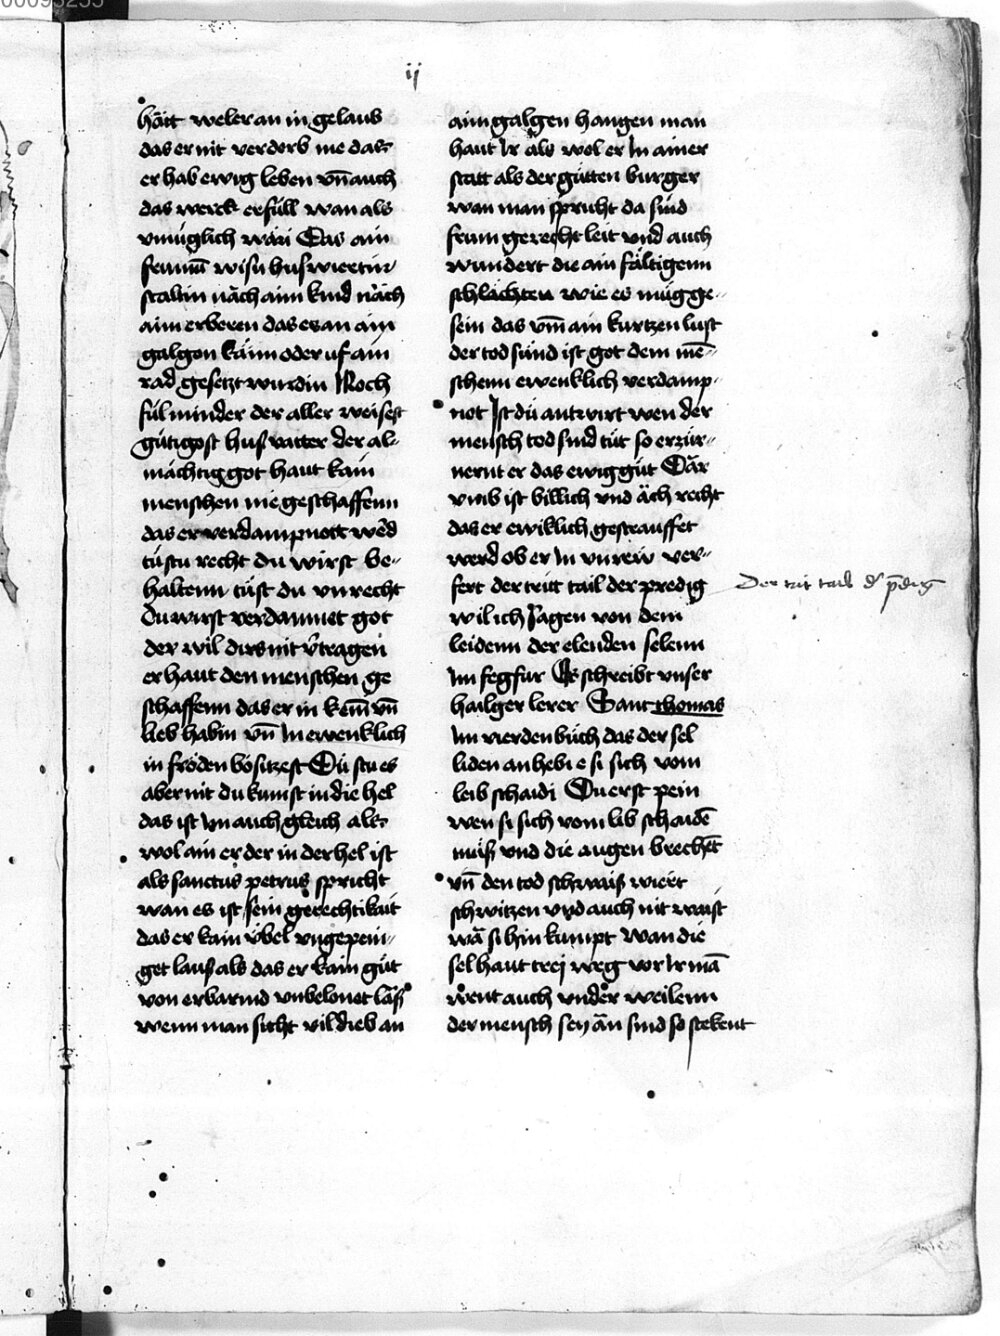 00095255
ij
hätt weler an in gelaub
das er nit verderb me das
er hab ewig leben vn̄ auch
das werck erfüll wan als
vmüglich wäri Das ain
frumū wisu huswirtin
staltin näch aim kind näch
aim erberen das es an ain
galgon käm oder uf ain
rad gesetzt wurdin Noch
fül minder der aller weisest
gütigost husvatter der al-
mächtig got haut kain
menschen nie geschaffenn
das er verdampnott wēd
tüstu recht du wirst be-
haltenn tüst du vnrecht
du wirst verdammet got
der wil dirs nit v̄tragen
er haut den menschen ge
schaffenn das er in kenn̄ vn̄
lieb habin vn̄ In ewenklich
in fröden bositzest Dü stu es
aber nit du kumst in die hel
das ist Im auch gleich als
wol ain er der in der hel ist
als sanctus petrus spricht
wan es ist sein gerechtikait
das er kain v̈bel vngepeni-
get lauss als das er kain güt
von erbarmd vnbelonet läß
wenn man sicht vil dieb an
aim galgen hangen man
haut Ir als wol er In ainer
statt als der gütten burger
wan man spricht da sind
frum gerecht leit vnd auch
wundert die ain fältigenn
schlächten wie es mügge-
sein das vm̄ ain kurtzen lust
der tod sünd ist got dem mē-
schenn ewenklich verdamp-
not Ist dü antwirt wen der
mensch tod sind tüt so erzür-
nernt er das ewig güt Dar
vmb ist billich vnd äch recht
das er ewiklich gestrauffet
werd ob er In vnrew ver-
fert der tritt tail der predig
wil ich sagen von dem
leidenn der elenden selenn
Im fegfur Es schreibt vnser
hailger lerer Sant thomas
Im vierden büch das der sel
liden an hebi e si sich vom
leib schaidi Du erst pein
wen si sich vom lib schaidē
müß vnd die augen brechēt
vn̄ den tod schwaiß wiert
schwitzen vnd auch nit waist
wā si hin kumpt wan die
sel haut trej weg vor Ir mā
went auch vnder weilenn
der mensch sey än sind so stekent
Der trit tail dˢ p̄dig